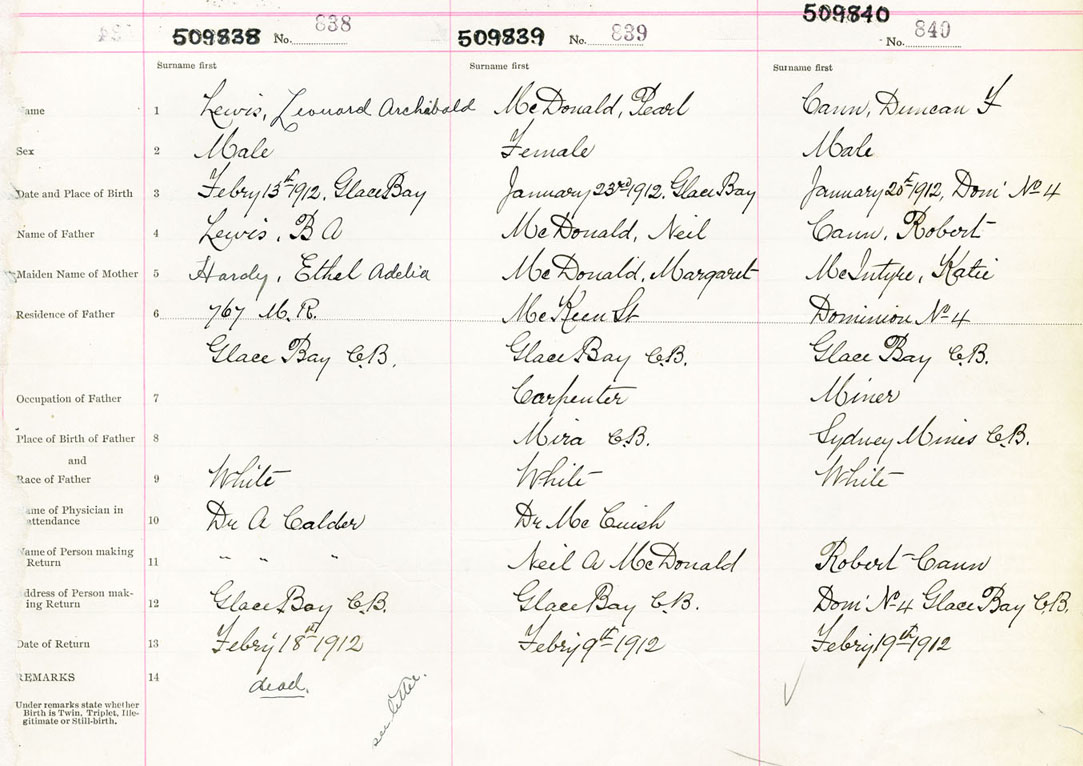 509838 No. 838 509839 No. 839 509840 No. 840
Surname first Surname first Surname first
ame 1 Lewis, Leonard Archibald McDonald, Pearl Cann, Duncan F
Sex 2 Male Female Male
Date and Place of Birth 3 Febry 13th 1912, Glace Bay January 23rd 1912, Glace Bay January 20th 1912, Dom' No 4
Name of Father 4 Lewis, B A McDonald, Neil Cann, Robert
Maiden Name of Mother 5 Hardy, Ethel Adelia McDonald, Margaret McIntyre, Katie
Residence of Father 6 767 M. R. McKeen St Dominion No 4
Glace Bay C.B. Glace Bay C.B. Glace Bay C.B.
Occupation of Father 7 Carpenter Miner
Place of Birth of Father 8 Mira C.B. Sydney Mines C.B.
and
Race of Father 9 White White White
ame of Physician in
attendance 10 Dr A Calder Dr McCuish
Name of Person making
Return 11 " " " Neil A McDonald Robert Cann
ddress of Person mak-
ing Return 12 Glace Bay C.B. Glace Bay C.B. Dom' No 4 Glace Bay C.B.
Date of Return 13 Febry 18th 1912 Febry 9th 1912 Febry 19th 1912
REMARKS 14 dead.
see letter.
Under remarks state whether
Birth is Twin, Triplet, Ille-
gitimate or Still-birth.